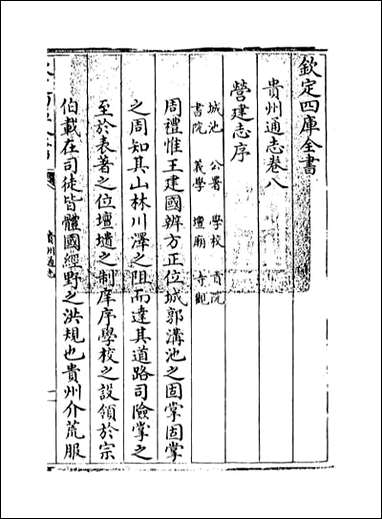 欽定四庫全書
貴州通志卷八
營建志序
城池　公署　學校　貢院
書院　義學　壇廟　寺觀
周禮惟王建國辨方正位城郭溝池之固掌固掌
之周知其山林川澤之阻而達其道路司險掌之
至於表著之位壇壝之制庠序學校之設領於宗
伯載在司徒皆體國經野之洪規也貴州介荒服
貴州通志